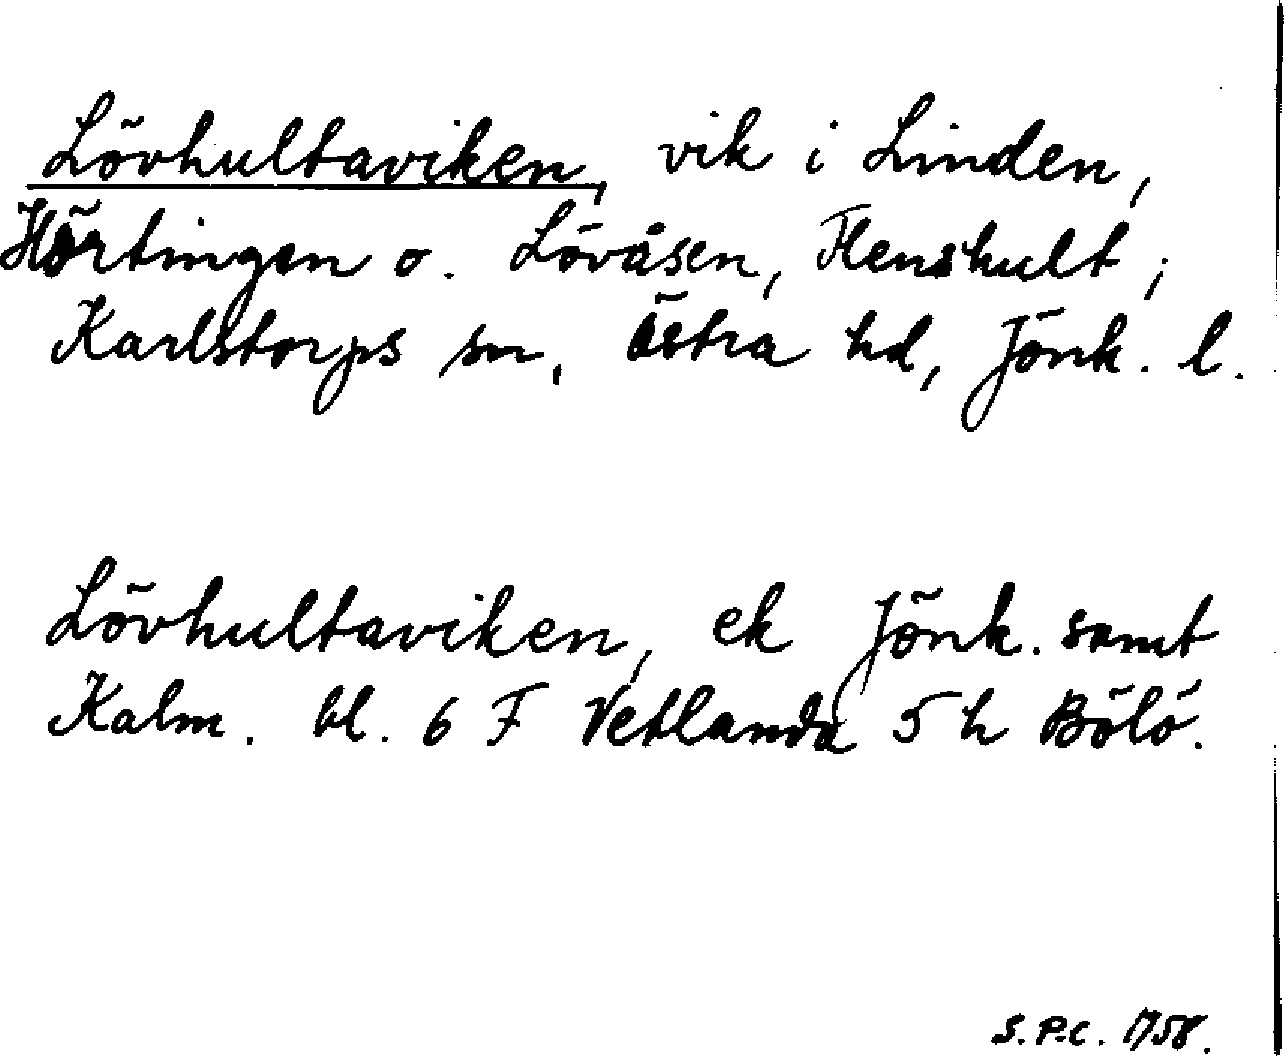 Lövhultaviken, vik i Linden,
Hörtingen o. Lövåsen, Flenshult;
Karlstorps sn, Östra hd, Jönk. l.
Lövhultaviken, ek Jönk. samt
Kalm. bl. 6 F Vetlanda 5 h Bölö.
S.P.C. 1958.